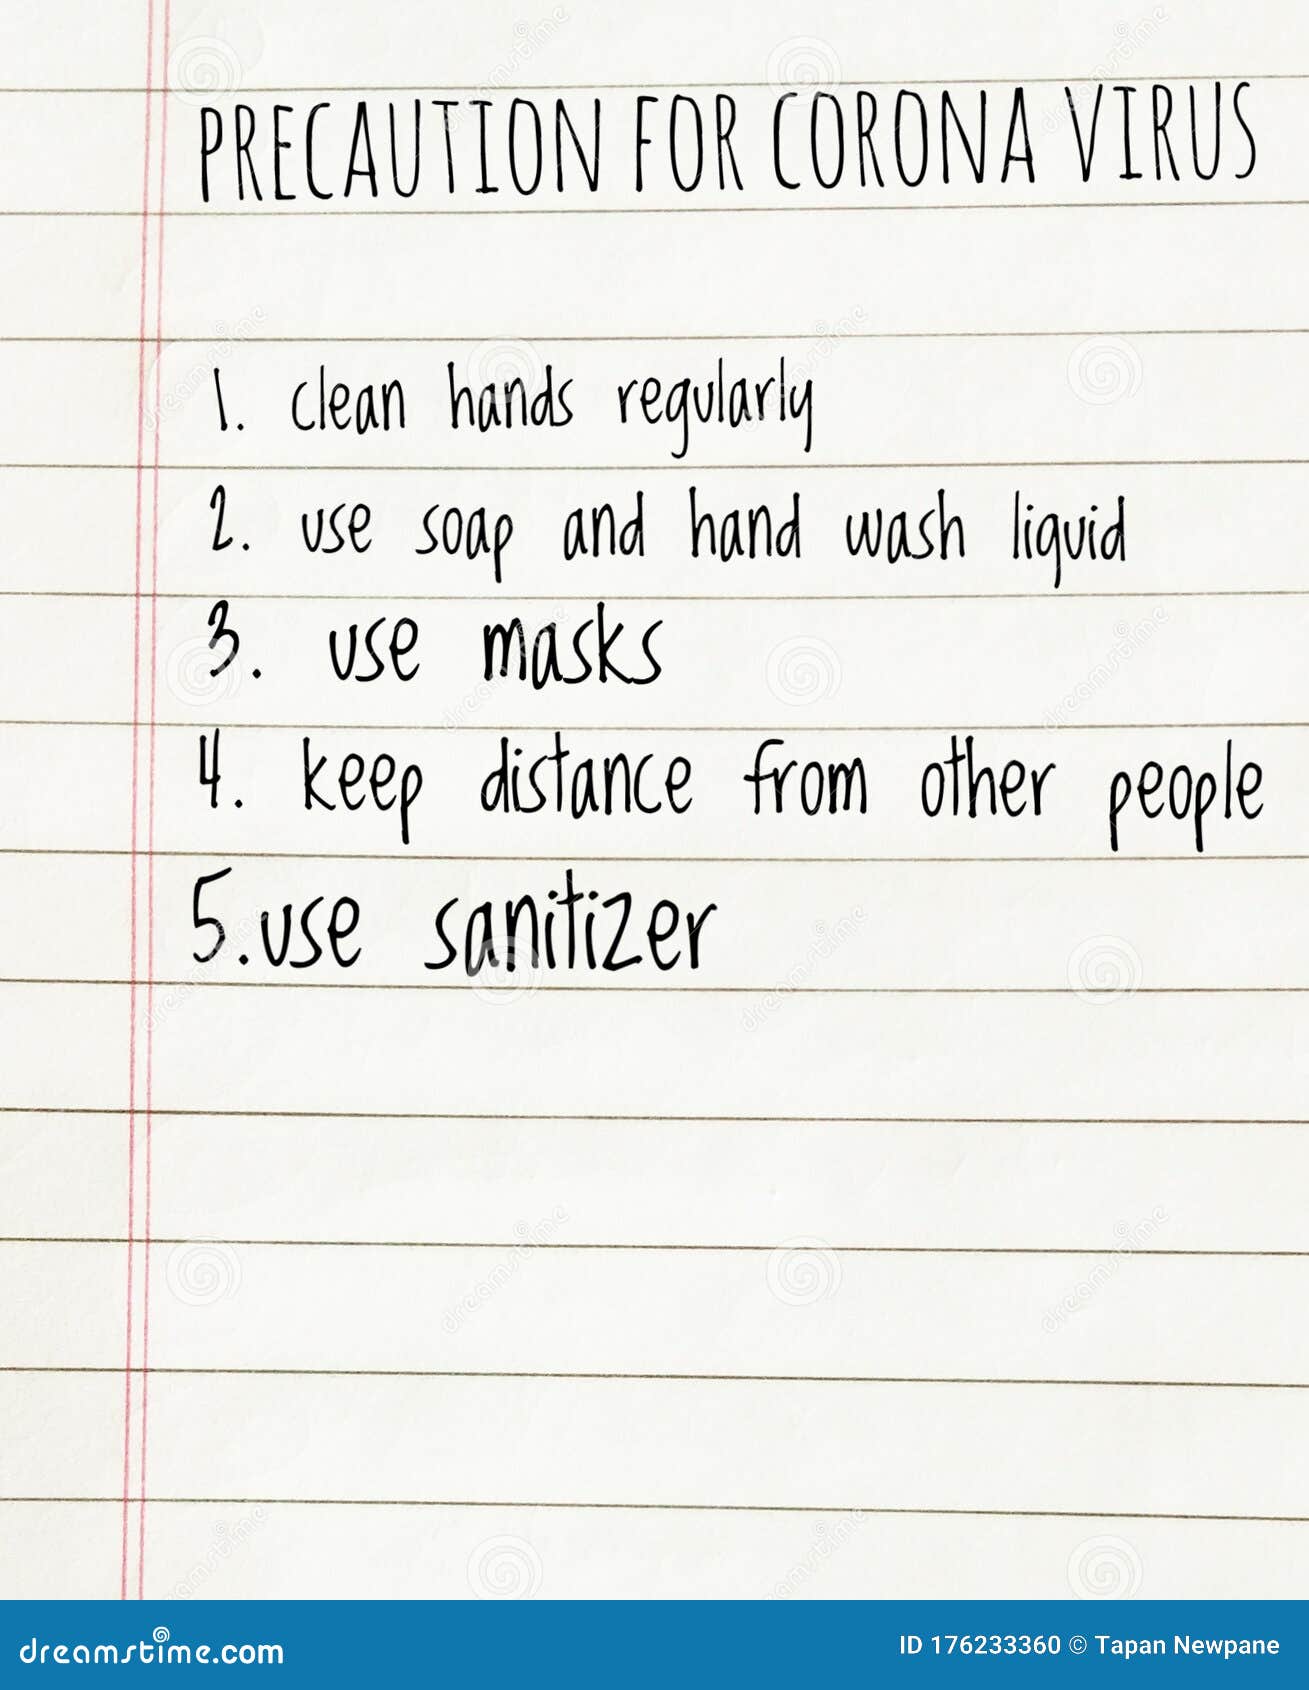 PRECAUTION FOR CORONA VIRUS
1. clean hands regularly
2. use soap and hand wash liquid
3. use masks
4. keep distance from other people
5. use sanitizer
dreamstime.com
ID 176233360 © Tapan Newpane